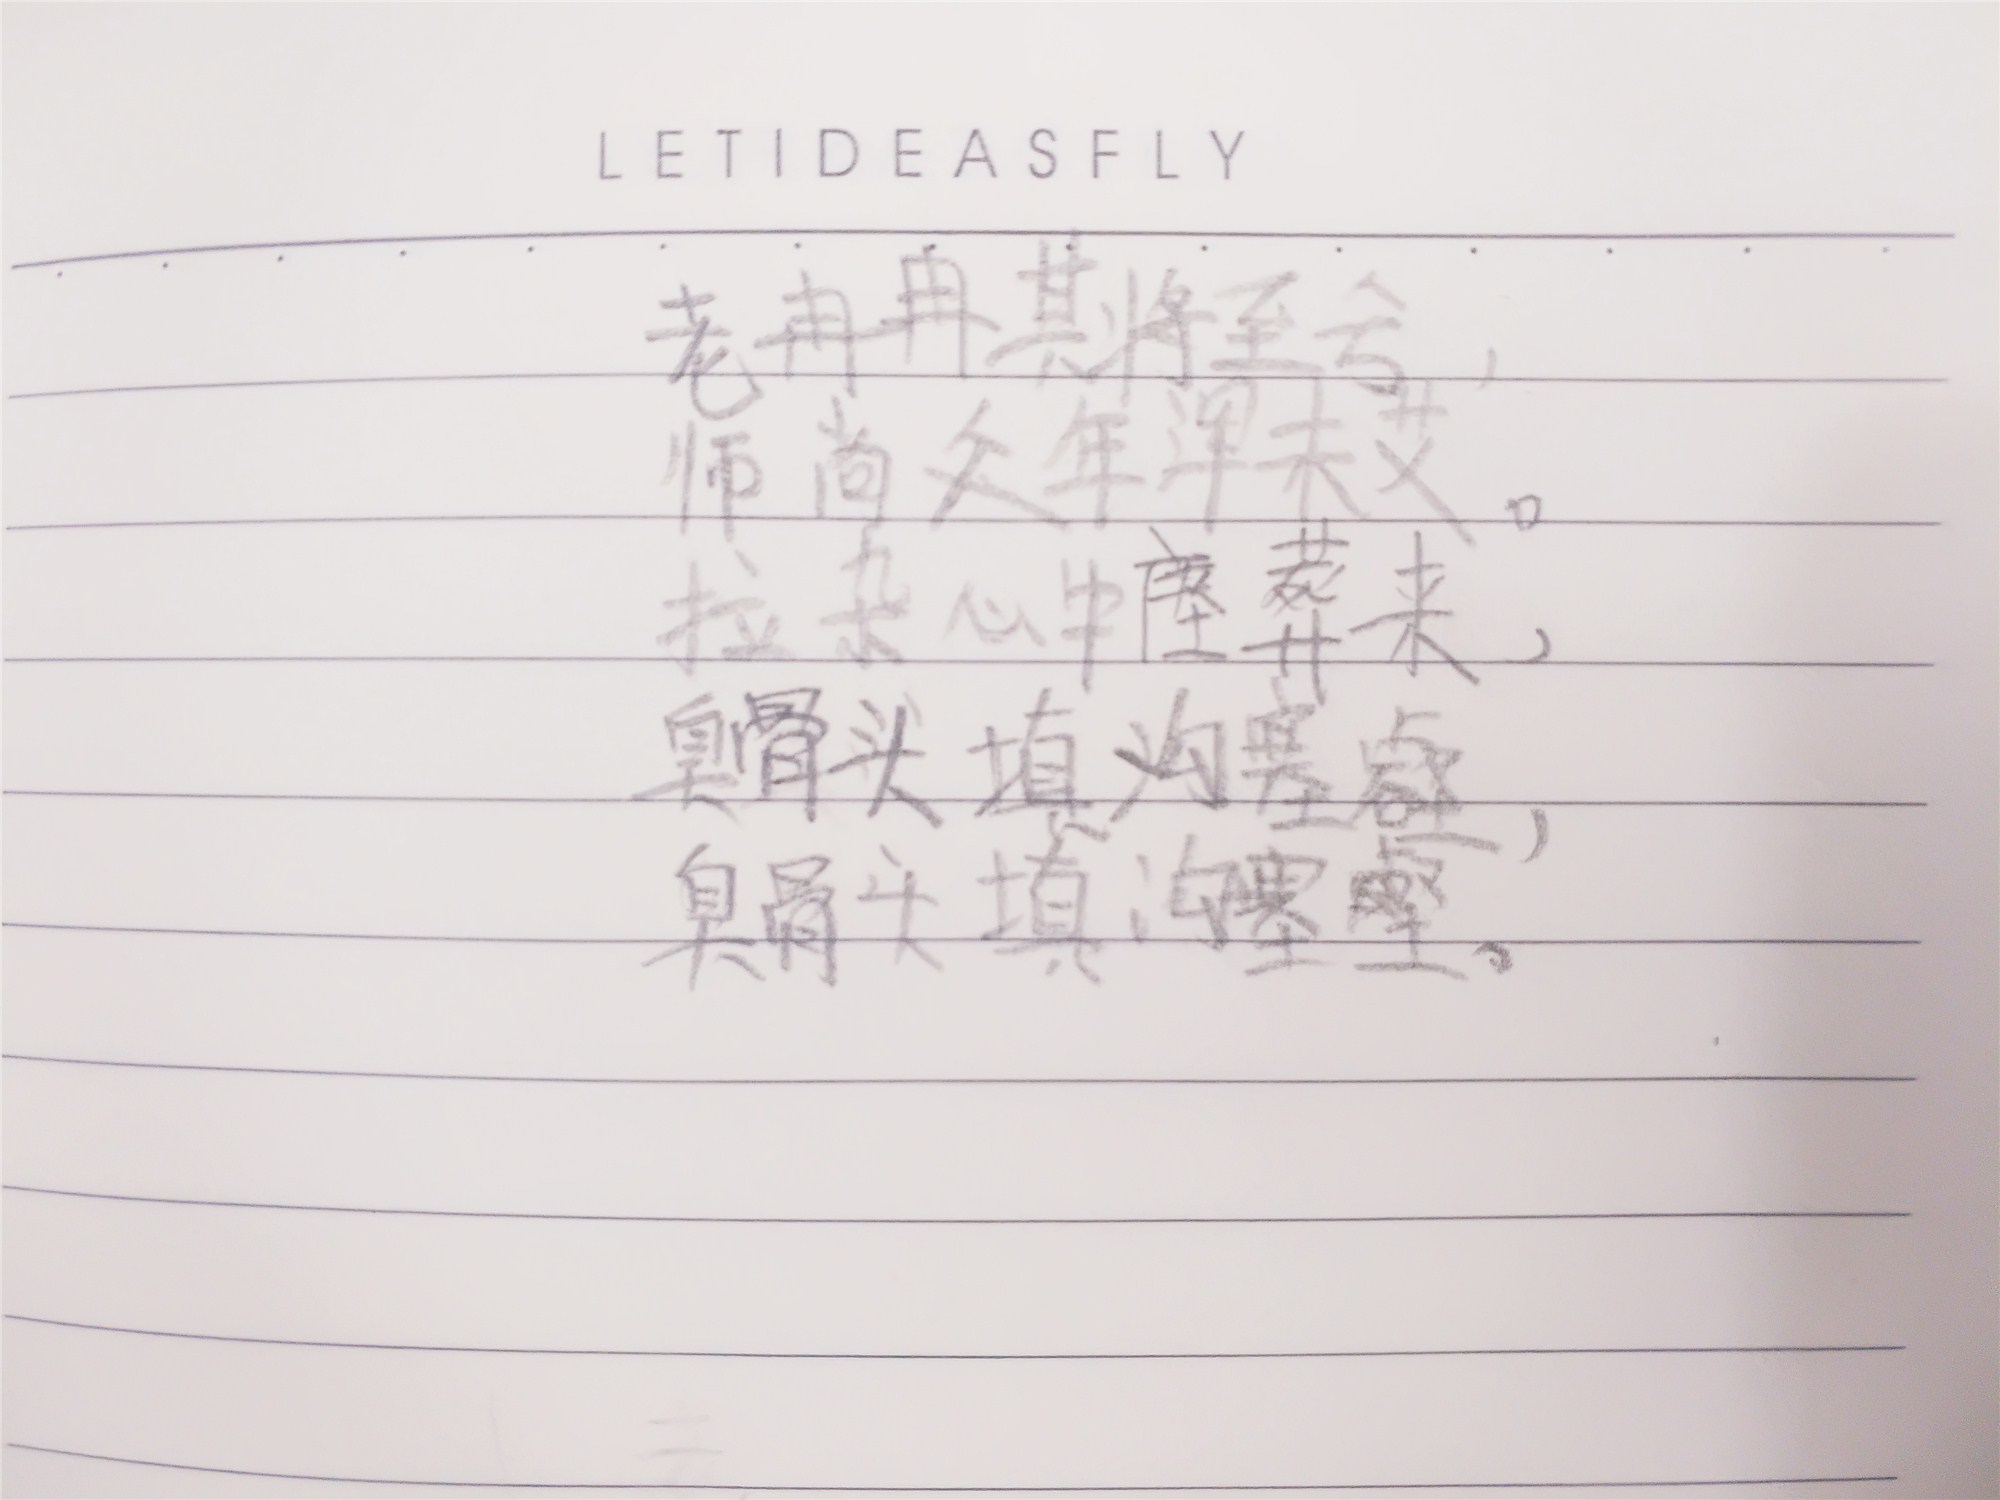 LETIDEASFLY
老冉冉其将至兮，
师尚父年浑未艾。
拉杂心中瘗葬来，
臭骨头填沟塞壑，
臭骨头填沟塞壑。